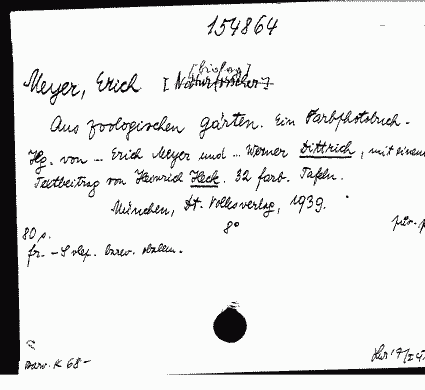 154864
[biolog]
Meyer, Erich [Naturforscher]
Aus zoologischen gärten. Ein Farbphotobuch.
Hg. von ... Erich Meyer und ... Werner Dittrich, mit einem
Textbeitrag von Heinrich Heck. 32 farb. Tafeln.
München, Dt. Volksverlag, 1939.
80 p. 8°
fr.
K 68-